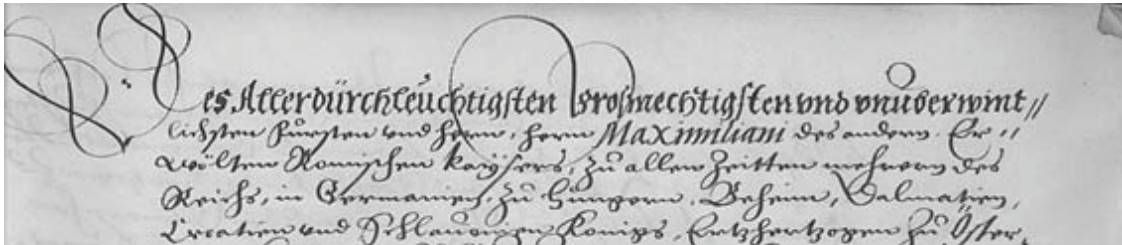 Des Allerdürchleuchtigsten Grosmechtigsten vnd vnuberwint//
lichsten Fursten vnd Herrn, Herrn Maximiliani des andern Er//
wölten Romischen Kaÿsers, zu allen Zeitten mehrern des
Reichs, in Germanien, zu Hungern, Beheim, Dalmatien,
Croatien vnd Schlauonien Konigs, Ertzhertzogen zu Öster,